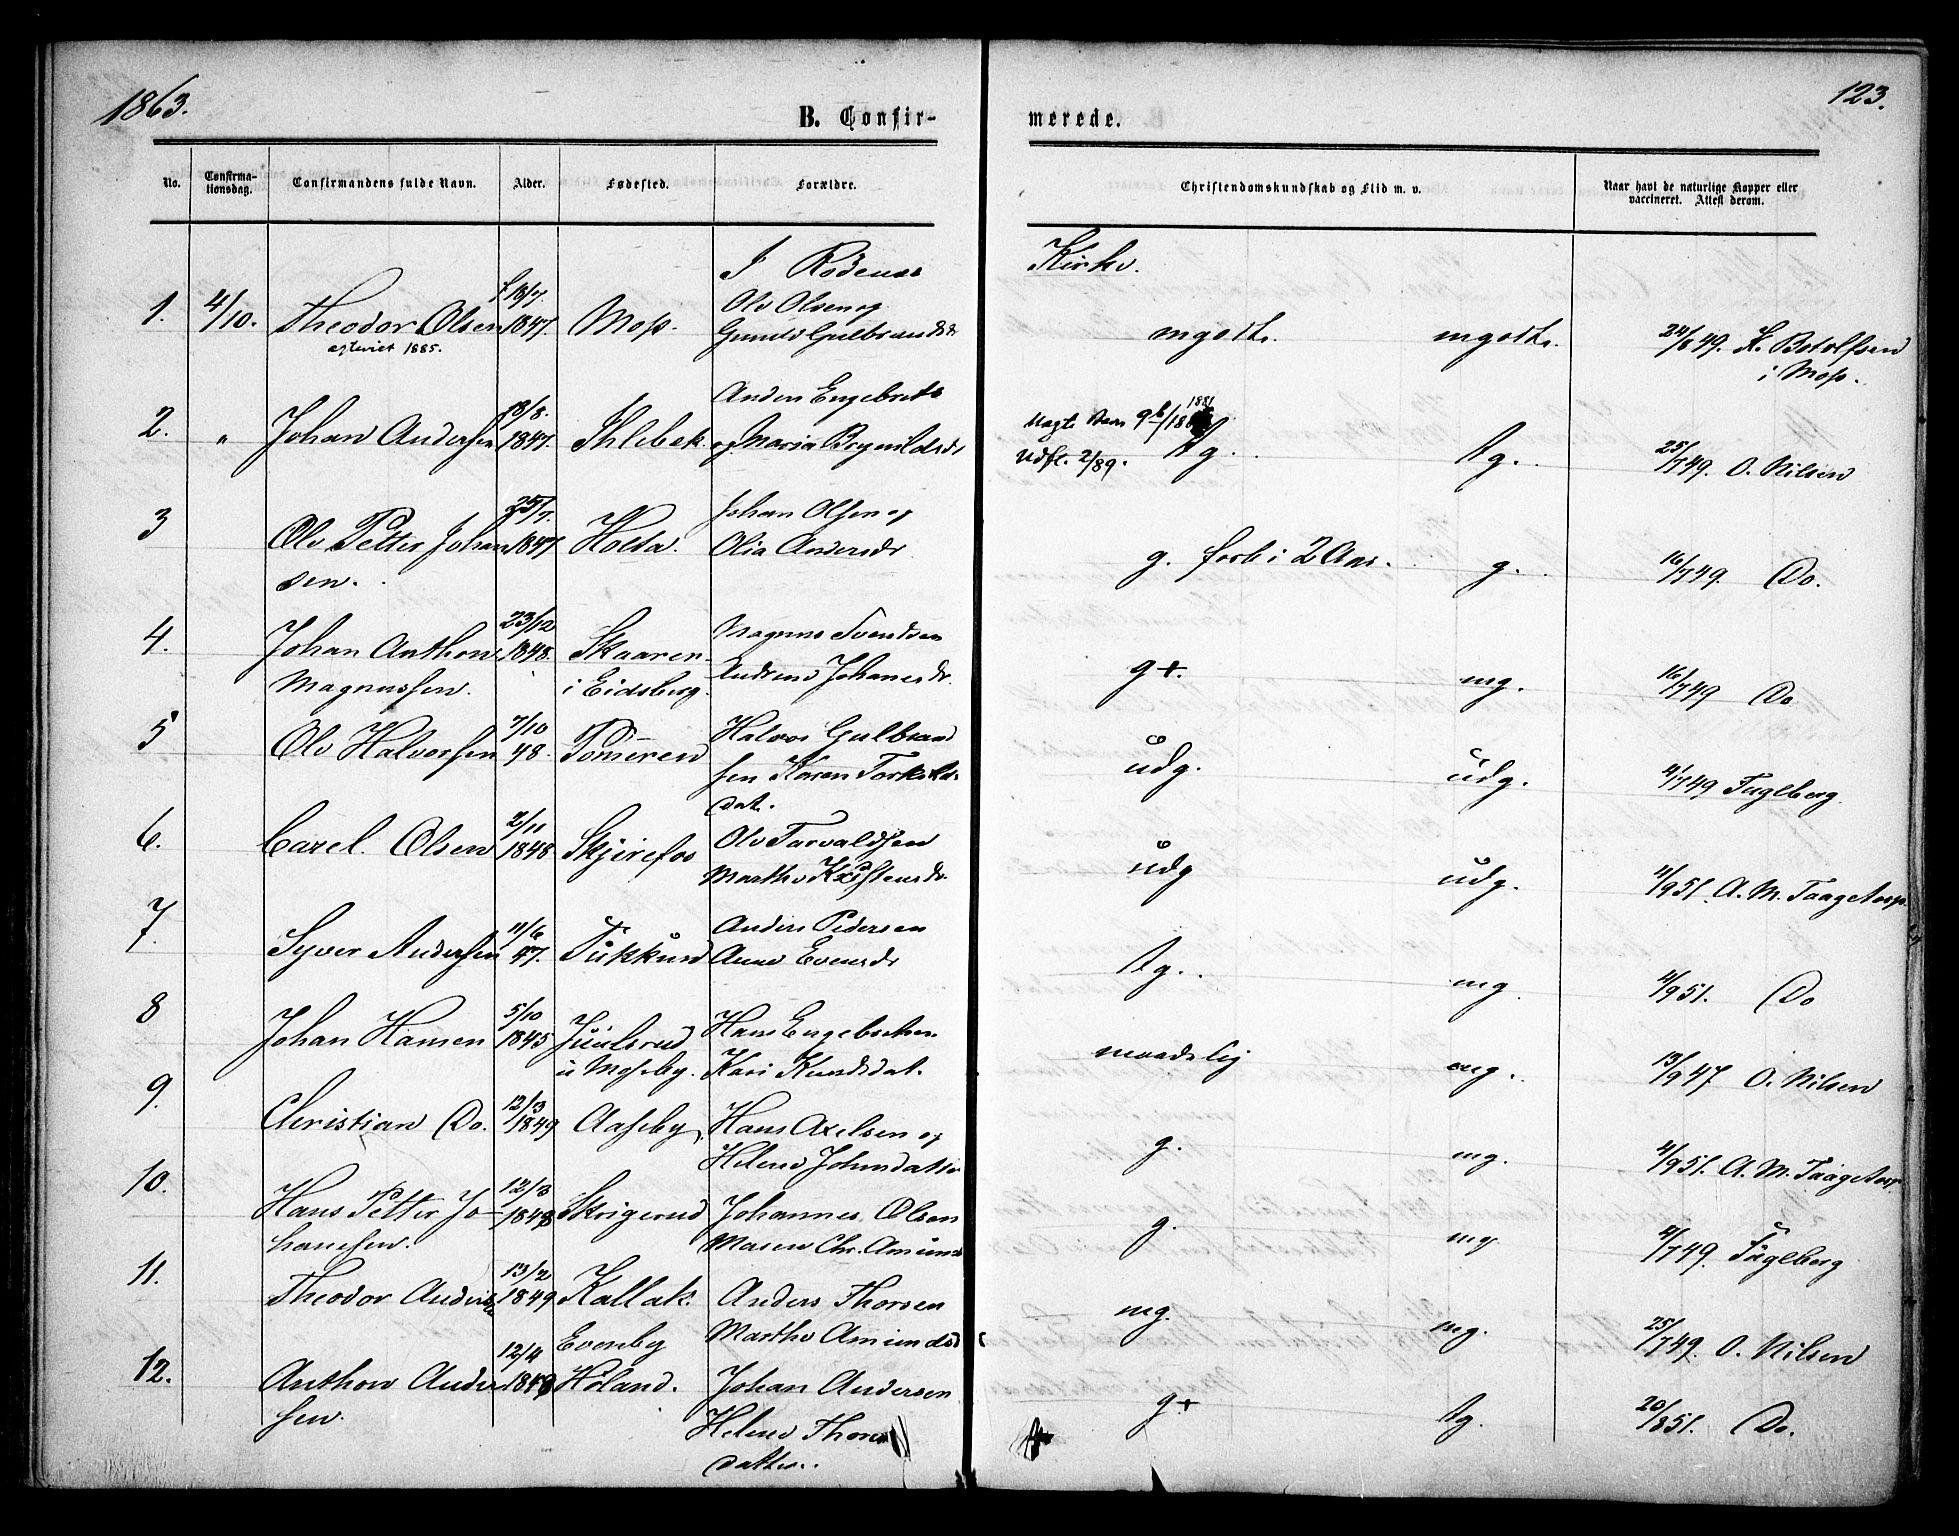 1863.
123.
B. Confirmerede.
No. Confirmationsdag. Confirmandens fulde Navn. Alder. Fødested. Forældre. Christendomskundskab og Flid m. v. Naar havt de naturlige Kopper eller vaccineret. Attest derom.
I Rødenes Kirke.
1. 4/10. Theodor Olsen f 18/7 1847. Moss. Ole Olsen og mgodt. mgodt. 24/6 49. K. Botolfsen i Moss.
1885.
2. " Johan Andersen 18/8 1847. Ihlebek. Anders Engebrets og Maria Brynildsdr
1881
Udfl. 2/89. tg. tg. 25/7 49. O. Nilsen
3 Ole Petter Johansen. 25/7. 1847 Holta. Johan Olsen og Olia Andersdr g. forb i 2 Aar. g. 16/7 49. Do.
4. Johan Anthon Magnussen. 23/12 1848. Skaaren i Eidsberg. Magnus Svendsen Johanesdr. g+. mg. 16/7 49 Do
5 Ole Halvorsen 7/10 48. Tomeren Halvor Gulbrandsen Karen Torkildsdat. udg. udg. 4/7 49 Fuglberg.
6. Carel Olsen 2/11 1848 Skjirefos Ole Torvaldsen Marthe udg udg. 4/9 51. A. M. Taagetorp.
7. Syver Andersen 11/6 47. Tukkund Anders Pedersen Anne Evensdr tg. mg. 4/9 51. Do
8 Johan Hansen 5/10 1845 Juulsrud i Mysseby. Hans Engebretsen Kari Knudsdat. maadelig mg. 13/9 47 O. Nilsen
9. Christian Do. 12/3 1849 Aaseby. Hans Axelsen og Helene Johnsdatter g. mg. 4/9 51. A. M. Taagetorp.
10. Hans Petter Johansen. 12/3 1848 Skrigerud Johannes Olsen Maren Chr. Amunds g. mg. 4/7 49. Fuglberg
11. Theodor Anders 13/2 1849 Kallak. Anders Thorsen Marthe Amundsd mg. mg. 25/7 49. O. Nilsen
12. Anthon Andersen. 12/4 1849 Evenby Høland. Johan Andersen Helene Thorsdatter. g+ tg. 20/8 51. Do.